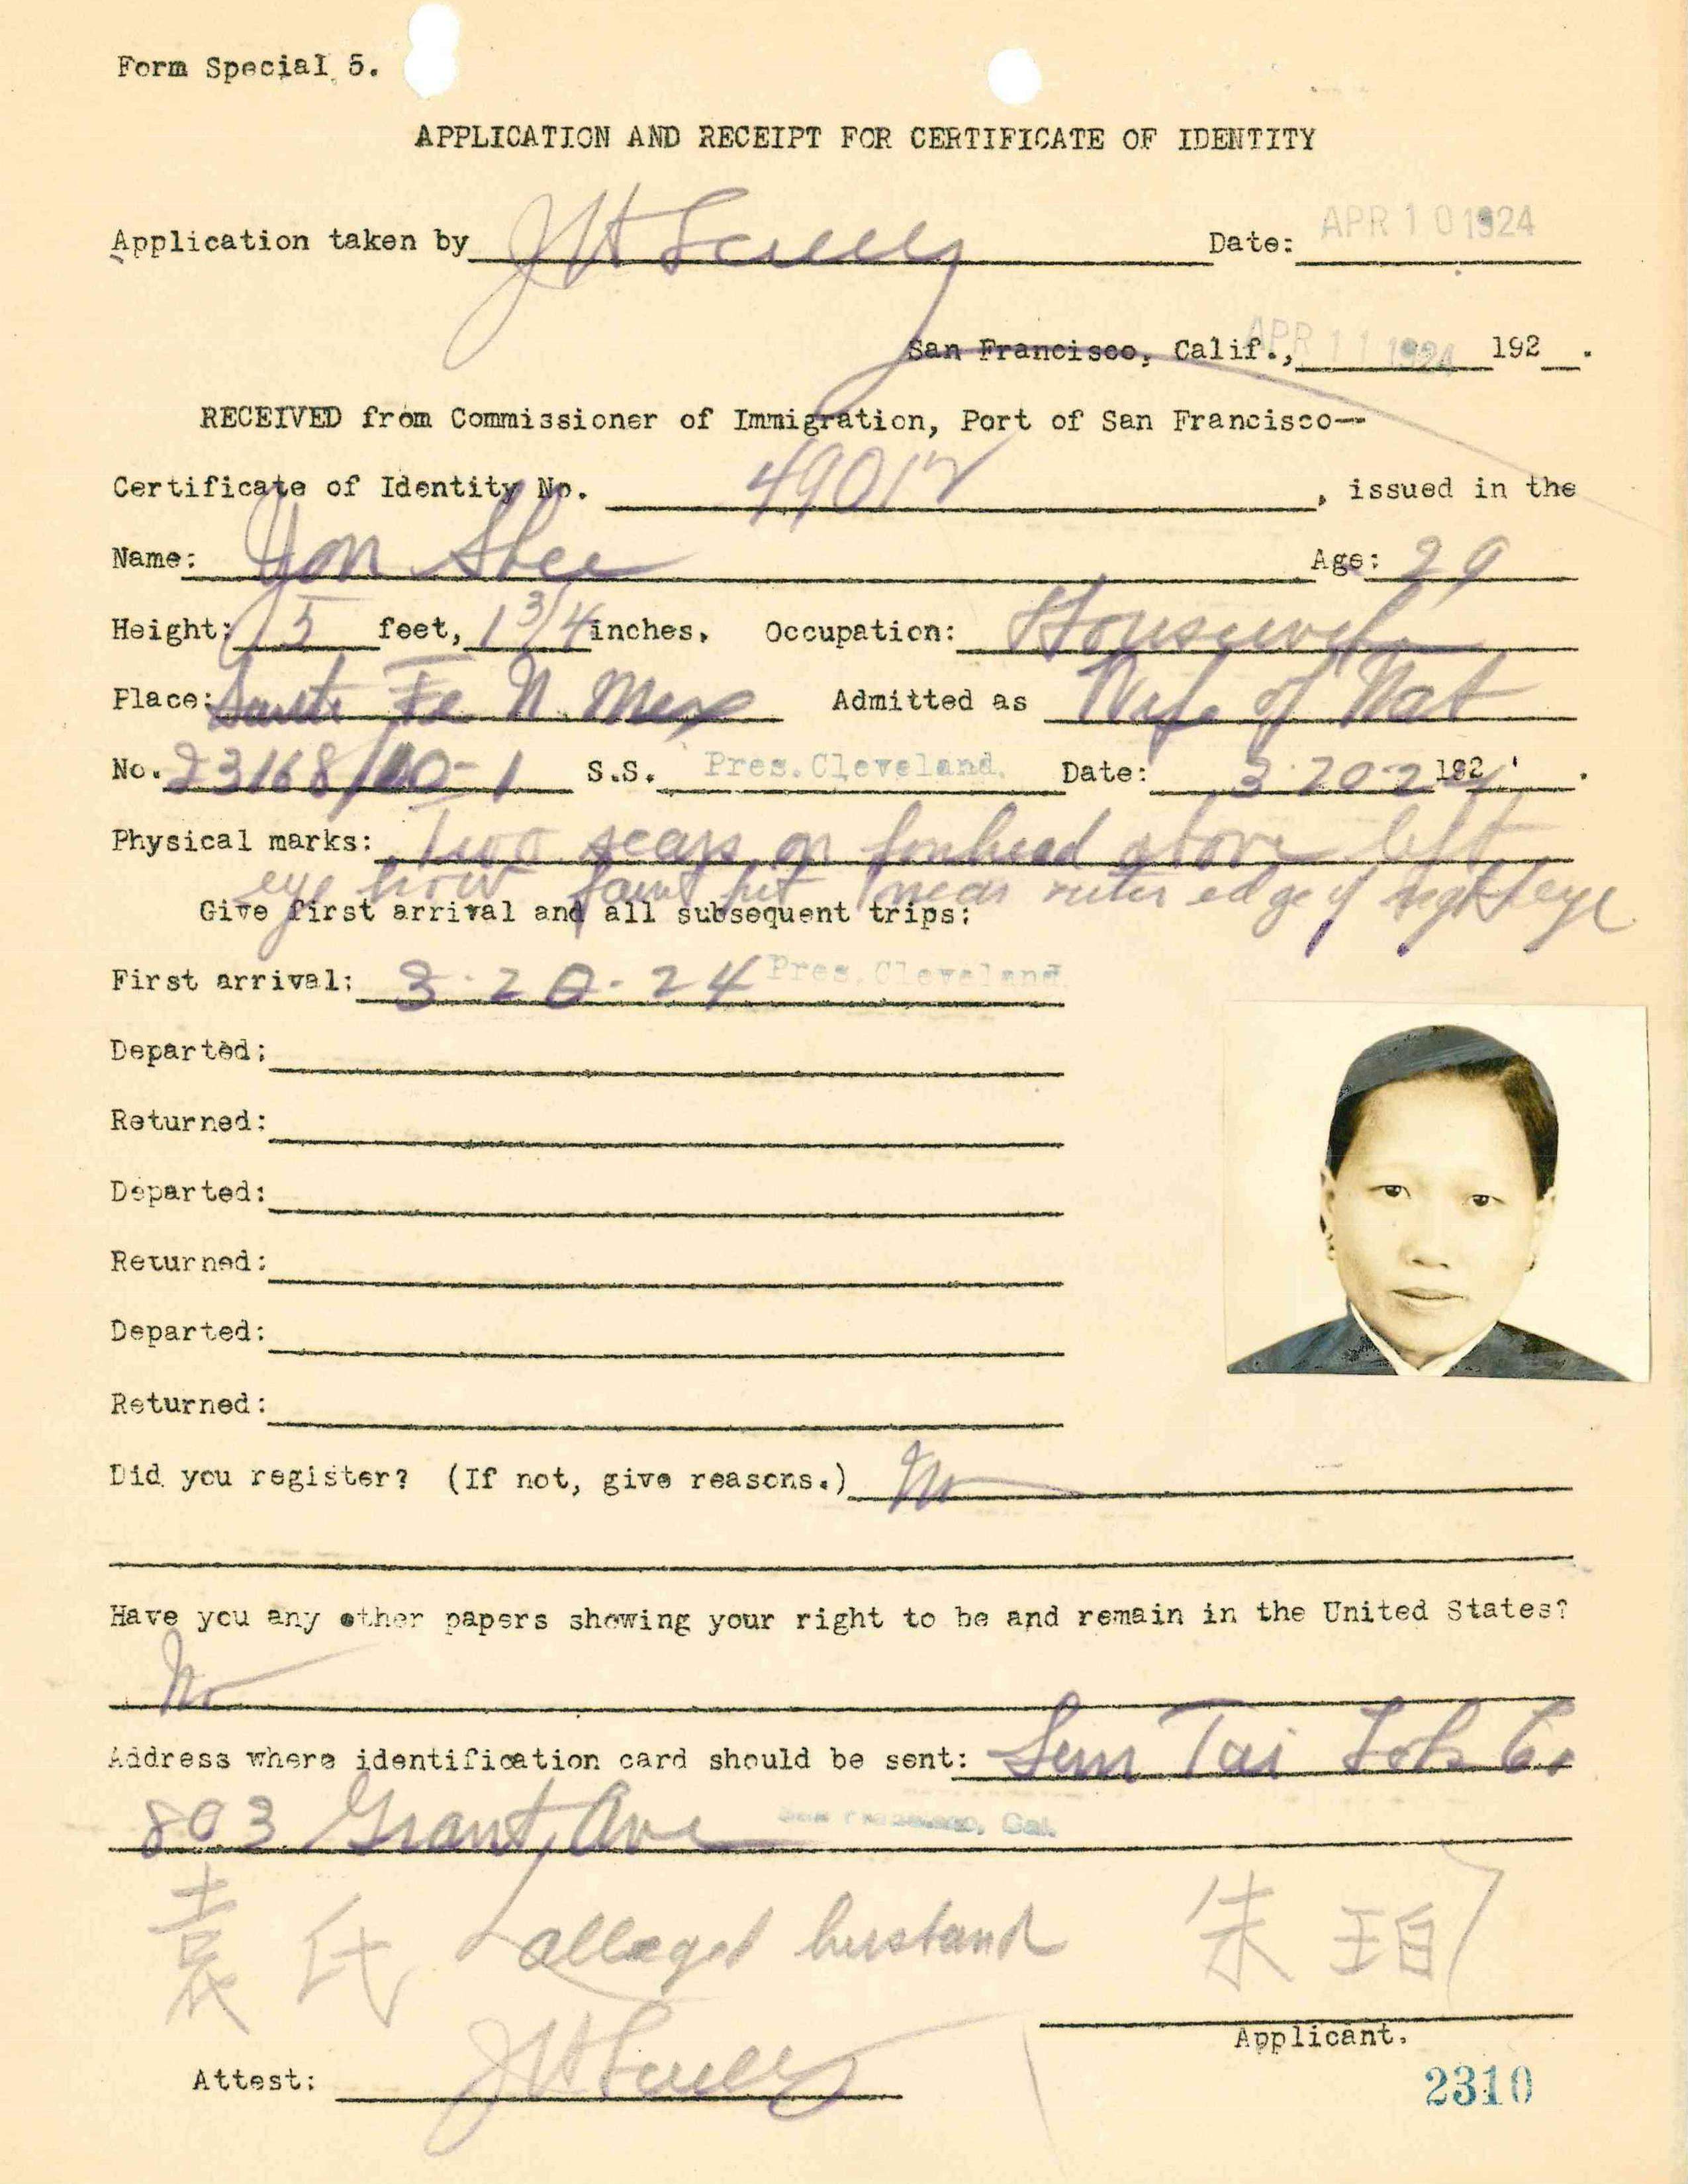 Form Special 5.
APPLICATION AND RECEIPT FOR CERTIFICATE OF IDENTITY
Application taken by J H Scully Date: APR 10 1924
San Francisco, Calif., APR 11 1924 192 .
RECEIVED from Commissioner of Immigration, Port of San Francisco--
Certificate of Identity No. 49012, issued in the
Name: Yon Shee Age: 29
Height: 5 feet, 1 3/4 inches, Occupation: Housewife
Place: Santa Fe N. Mex Admitted as Wife of Nat
No. 23168/10-1 S.S. Pres. Cleveland. Date: 3-20-24 192 .
Physical marks: Two scars on forehead above left
eye brow faint pit near outer edge of right eye
Give first arrival and all subsequent trips:
First arrival: 3-20-24 Pres. Cleveland
Departed:
Returned:
Departed:
Returned:
Departed:
Returned:
Did you register? (If not, give reasons.) No
Have you any other papers showing your right to be and remain in the United States?
No
Address where identification card should be sent: Sun Tai Co
803 Grant Ave San Francisco, Cal.
袁氏 alleged husband 朱珀
Applicant.
Attest: J H Scully
2310